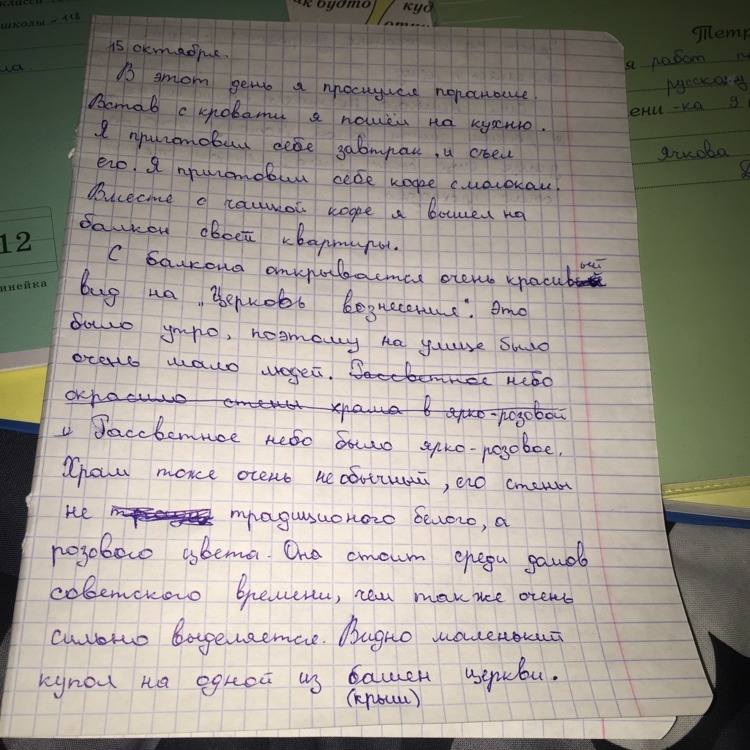 класси
школы - 118
ма.
12
инейка
ак будто
куд
Тетр
я работ п
русскому
ени -ка 9
Ячкова
15 октября.
В этот день я проснулся пораньше.
Встав с кровати я пошёл на кухню.
Я приготовил себе завтрак и съел
его. Я приготовил себе кофе с молокам.
Вместе с чашкой кофе я вышел на
балкон своей квартиры.
С балкона открывается очень красивый
вид на „Церковь вознесения". Это
было утро, поэтому на улице было
очень мало людей. Рассветное небо
окрасило стены храма в ярко-розовой
и Рассветное небо было ярко-розовое.
Храм тоже очень необычный, его стены
не традиционого белого, а
розового цвета. Она стоит среди дамов
советского времени, чем также очень
сильно выделяется. Видно маленький
купол на одной из башен церкви.
(крыш)